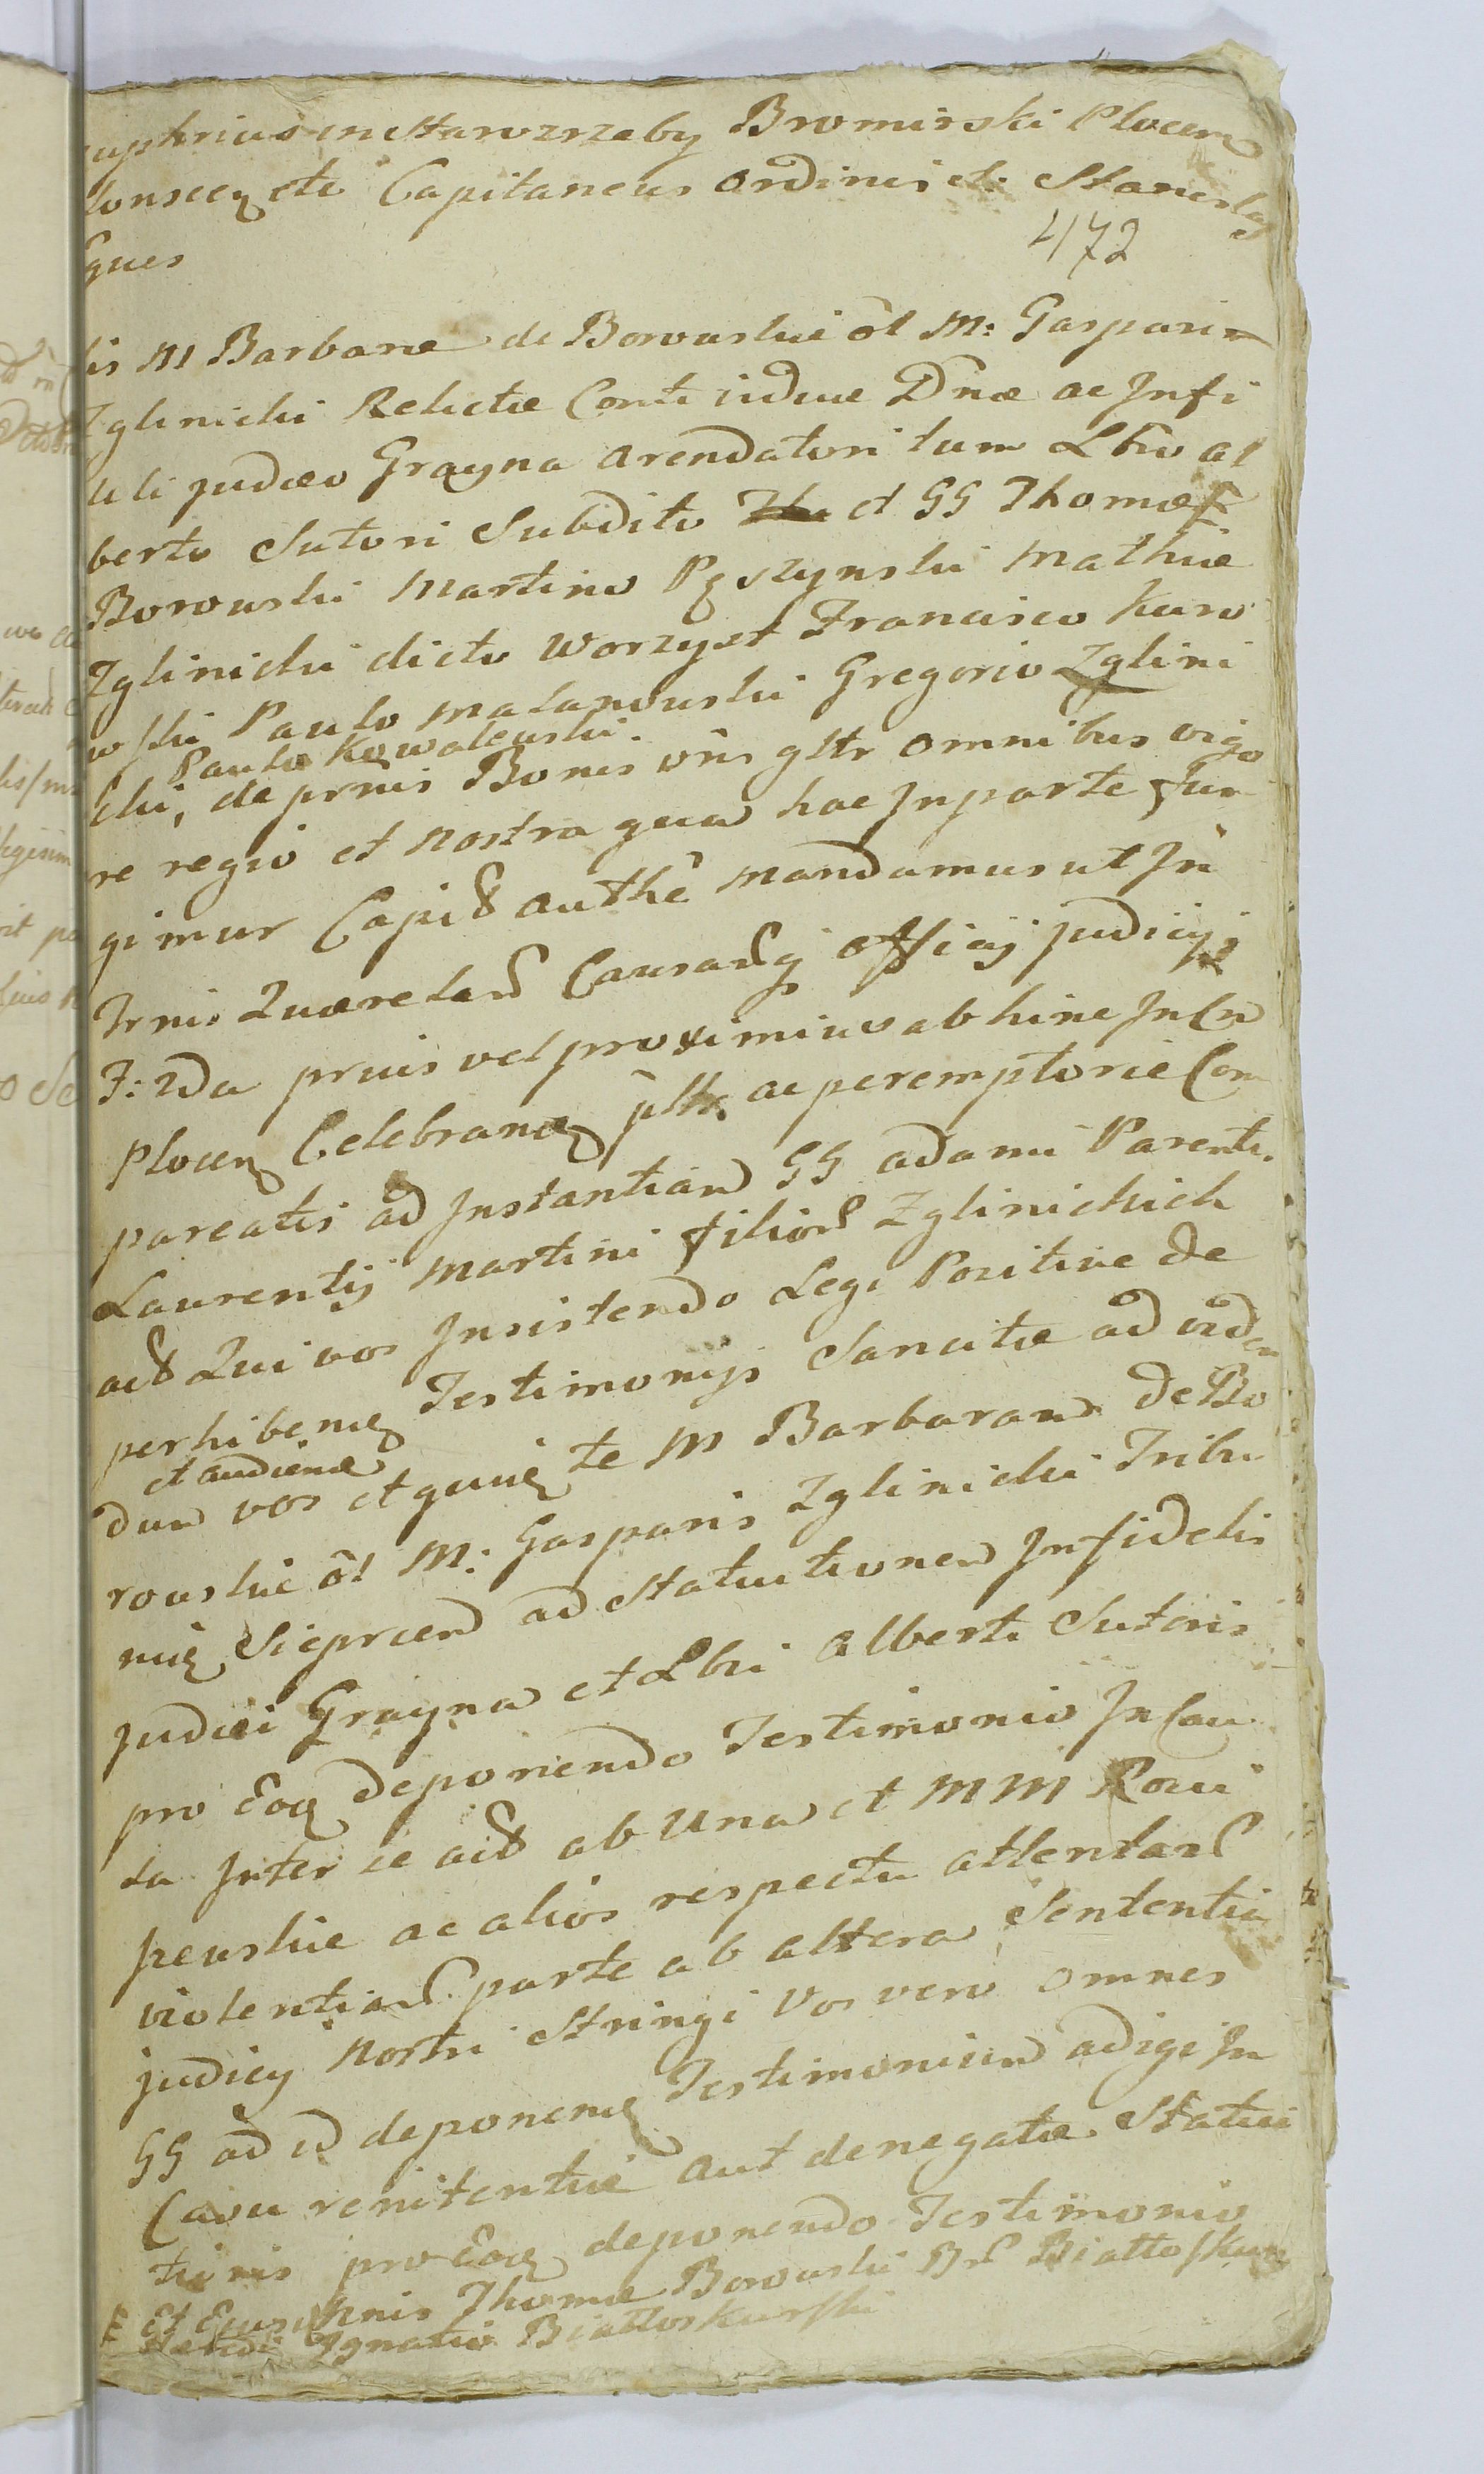 uphrius in Starozrzeby Bromirski Plocen
Consecz etc Capitaneus Ordinis st. Stanislai
Eques
472
lis M Barbarae de Borouskie ol M: Gasparis
Zglinicki Relictae Conti viduae Dnae ac Infi
deli judaeo Grayna arendatori tum Lbro al
berto Sutori Subdito et GG Thomae
Borouski Martino Pęszynski Mathiae
Zglinicki dicto Worzyszt Francisco Kuro
wski Paulo Malanouski Gregorio Zglini
Paulo Kowaleuski.
cki, de prmis Bonis vris gltr omnibus vigo
re regio et nostra qua hac In parte fun
gimur Capi authe mandamus ut In
Trnis Quaerelar Causarq officij judicijq
F: 2da prius vel proximius ab hinc In Cn
Plocen Celebranae pltr ac peremptorie Com
pareatis ad Instantiam GG adami Parentis
Laurentij Martini filior Zglinickich
act Qui vos Insistendo Legi Positivae de
perhibenis Testimonijs Sancitae ad viden
et audiena
dum vos et quiae te M Barbaram de Bo
rouskie ol M: Gasparis Zglinicki Tribu
nie Sieprcen ad Statutionem Infidelis
judaei Grayna et Lbri Alberti Sutoris
pro Eoq deponendo Testimonio In Cau
sa Inter se act ab Una et M M Rosci
szeuskie ac alios respectu attentar
violentiar parte ab altera Sententia
judicij Nostri Stringi Vos vero omnes
GG ad id deponenae Testimonium adigi In
Casu renitentiae aut denegatae Statui
tionis pro Eoq deponendo Testimonio
Et Thomae Borouski Biallosku
Ignatio Bialloskurski